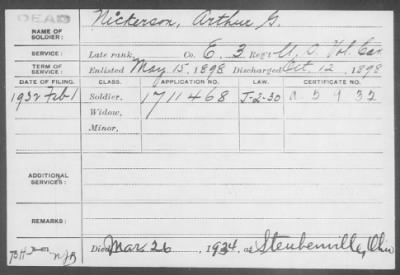 DEAD
NAME OF SOLDIER: Nickerson, Arthur G.
SERVICE: Late rank, Co. E, 3 Reg't U. S. Vol Cav
TERM OF SERVICE: Enlisted May 15, 1898 Discharged Oct. 12, 1898
DATE OF FILING. CLASS. APPLICATION NO. LAW. CERTIFICATE NO.
1932 Feb 1 Soldier, 1711468 J-2-30 a 5 9 32
Widow,
Minor,
ADDITIONAL SERVICES:
REMARKS:
Died Mar. 26, 1934, at Steubenville, Ohio